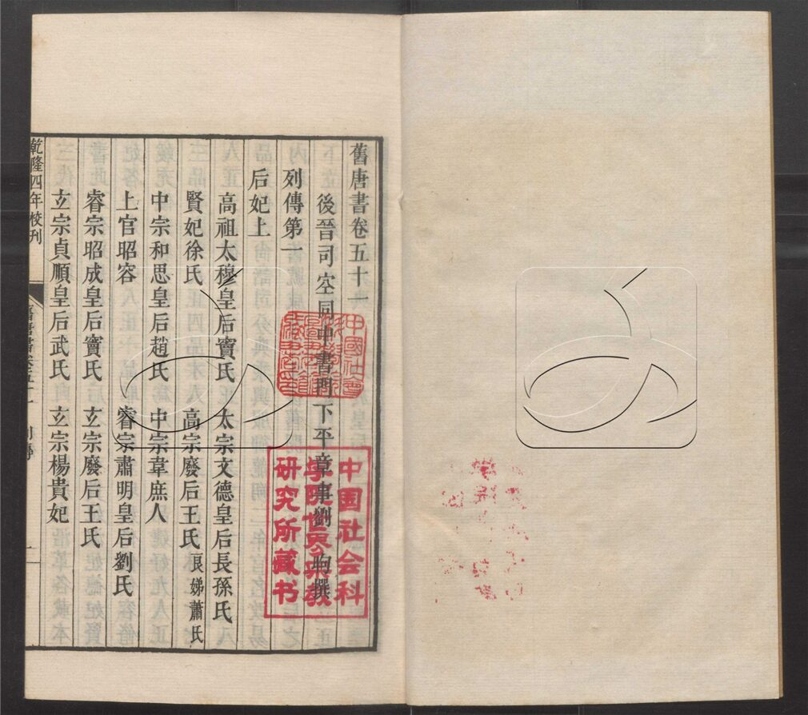 舊唐書卷五十一
後晉司空同中書門下平章事劉昫撰
列傳第一
后妃上
高祖太穆皇后竇氏 太宗文德皇后長孫氏
賢妃徐氏 高宗廢后王氏 良娣蕭氏
中宗和思皇后趙氏 中宗韋庶人
上官昭容 睿宗肅明皇后劉氏
睿宗昭成皇后竇氏 玄宗廢后王氏
玄宗貞順皇后武氏 玄宗楊貴妃
乾隆四年校刊
舊唐書卷五十一 列傳 一
中國社會
中国社会科
學院世界宗教
研究所藏书